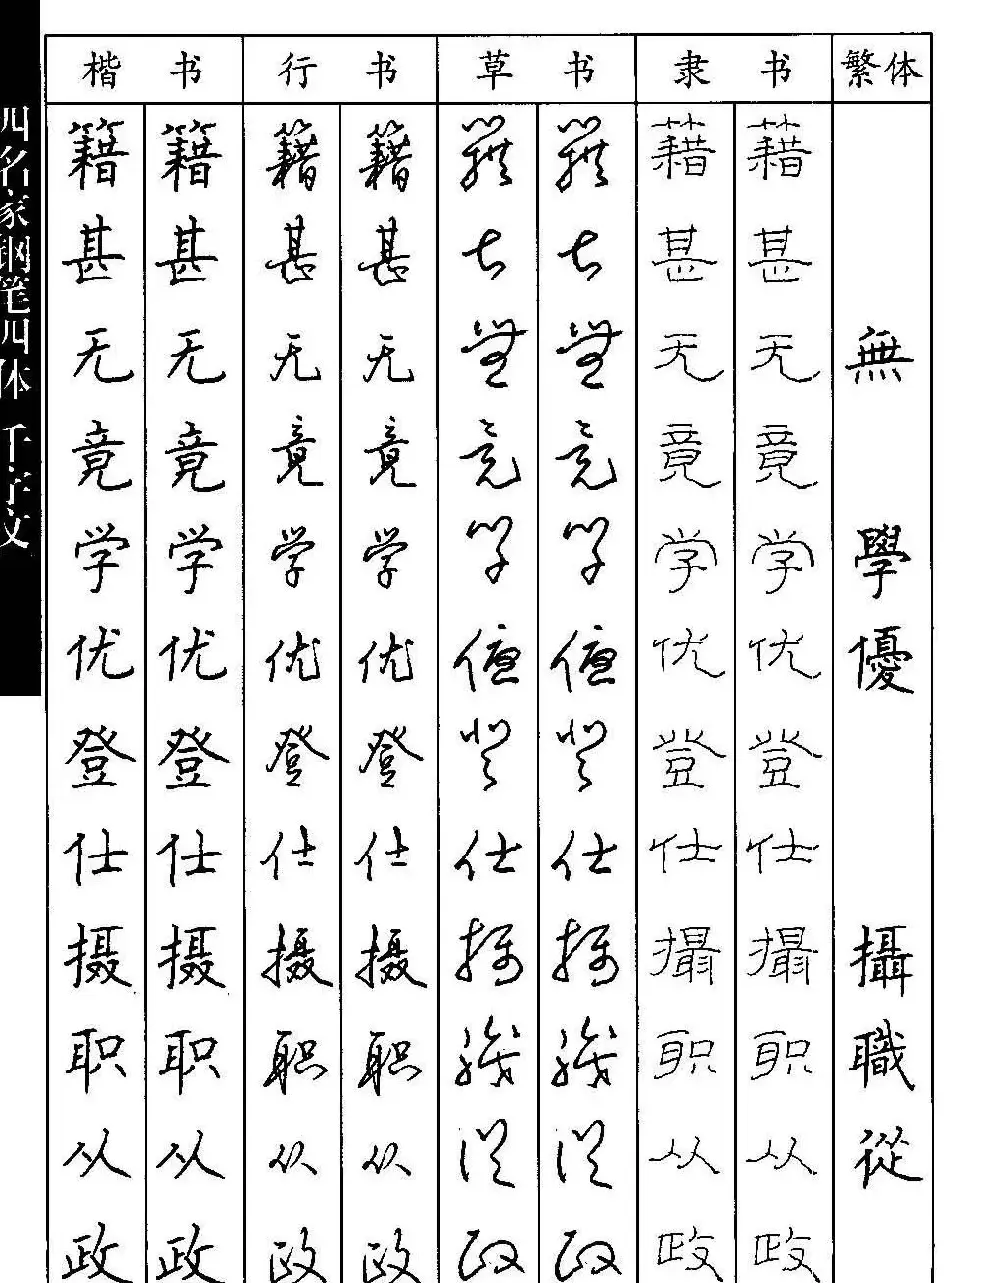 四名家钢笔四体 千字文
楷书 行书 草书 隶书 繁体
籍 籍 籍 籍 籍 籍 籍 籍
甚 甚 甚 甚 甚 甚 甚 甚
无 无 无 无 無 無 无 无 無
竟 竟 竟 竟 竟 竟 竟 竟
学 学 学 学 学 学 学 学 學
优 优 优 优 優 優 优 优 優
登 登 登 登 登 登 登 登
仕 仕 仕 仕 仕 仕 仕 仕
摄 摄 摄 摄 攝 攝 攝 攝 攝
职 职 职 职 職 職 职 职 職
从 从 从 从 從 從 从 从 從
政 政 政 政 政 政 政 政